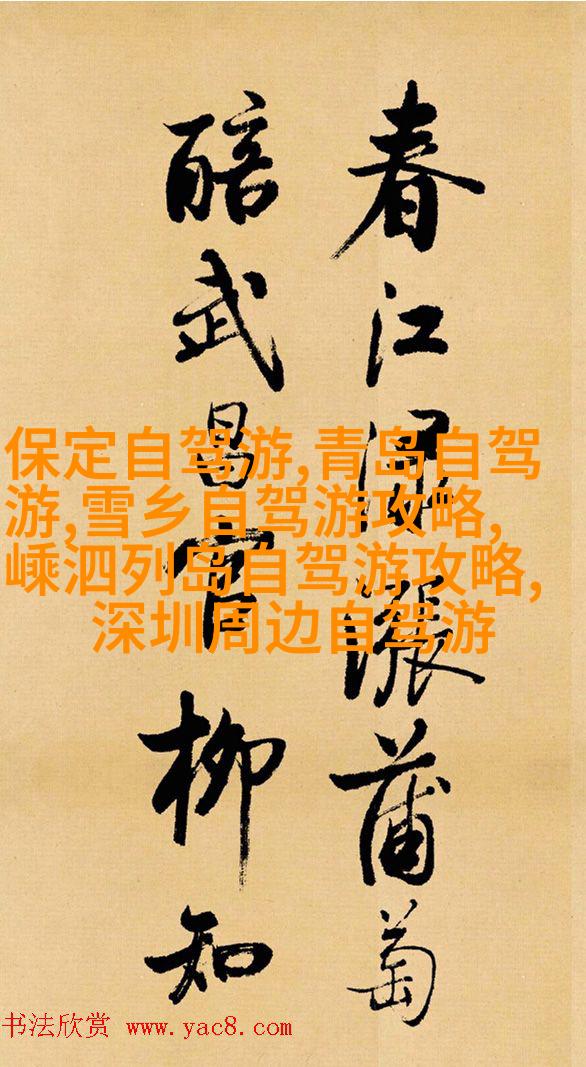 春江淥漲蒲萄
醅武昌官柳知
保定自驾游,青岛自驾
游,雪乡自驾游攻略,
嵊泗列岛自驾游攻略,
深圳周边自驾游
书法欣赏 www.yac8.com